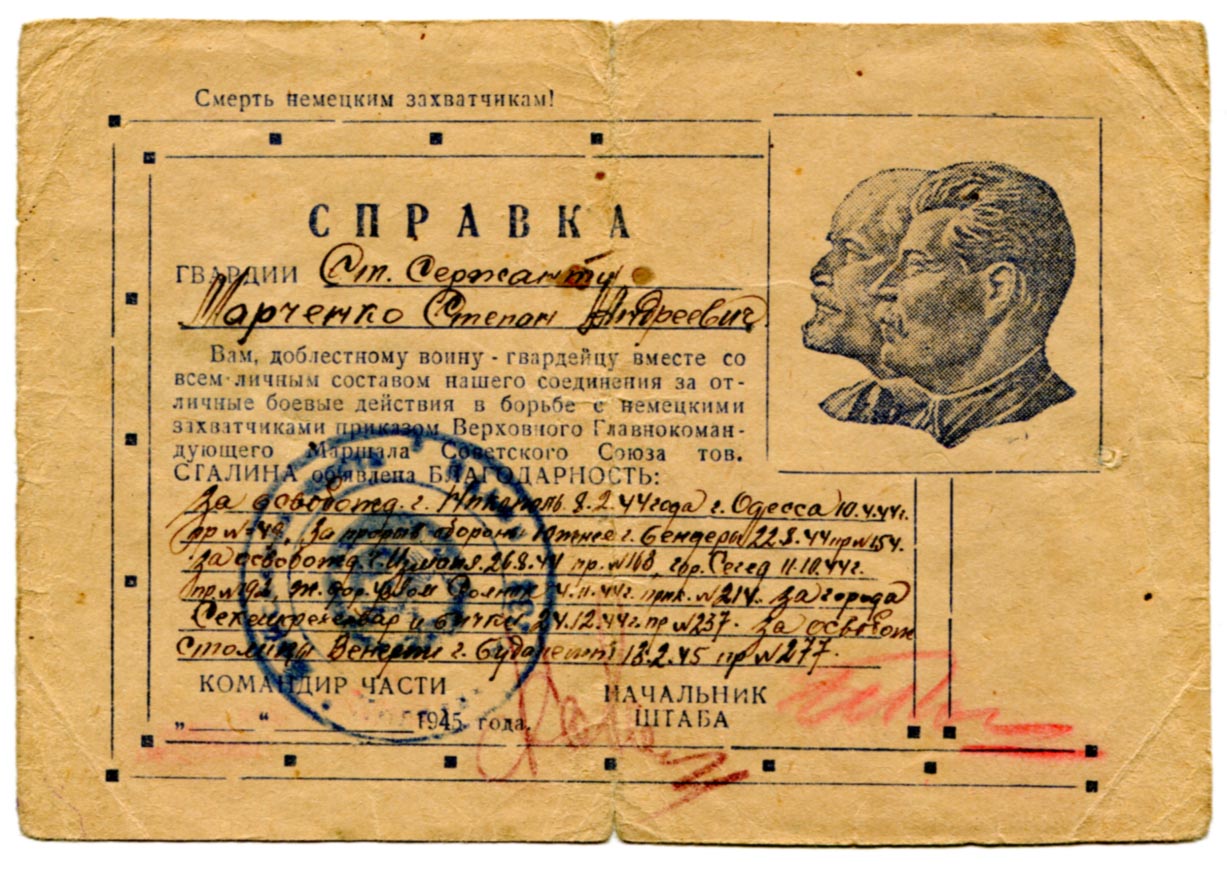 Смерть немецким захватчикам!
СПРАВКА
ГВАРДИИ Ст. Сержанту
Марченко Степан Андреевич
Вам, доблестному воину - гвардейцу вместе со
всем личным составом нашего соединения за от-
личные боевые действия в борьбе с немецкими
захватчиками приказом Верховного Главнокоман-
дующего Маршала Советского Союза тов.
СТАЛИНА объявлена БЛАГОДАРНОСТЬ:
за освобожд. г. Никополь 8.2.44 года г. Одесса 10.4.44г.
за прорыв обороны южнее г. Бендеры 22.8.44 пр №154.
за освобожд. г. Измаил 26.8.44 пр. №168, гор. Сегед 11.10.44г.
пр №192, ж. дор. узлом Солнок 4.11.44г. прик. №214. за города
Секешфехервар и Бичке 24.12.44г. пр №237. за освобож
столицы Венгрии г. Будапешт 13.2.45 пр №277.
КОМАНДИР ЧАСТИ
НАЧАЛЬНИК
ШТАБА
„ “ 1945 года.